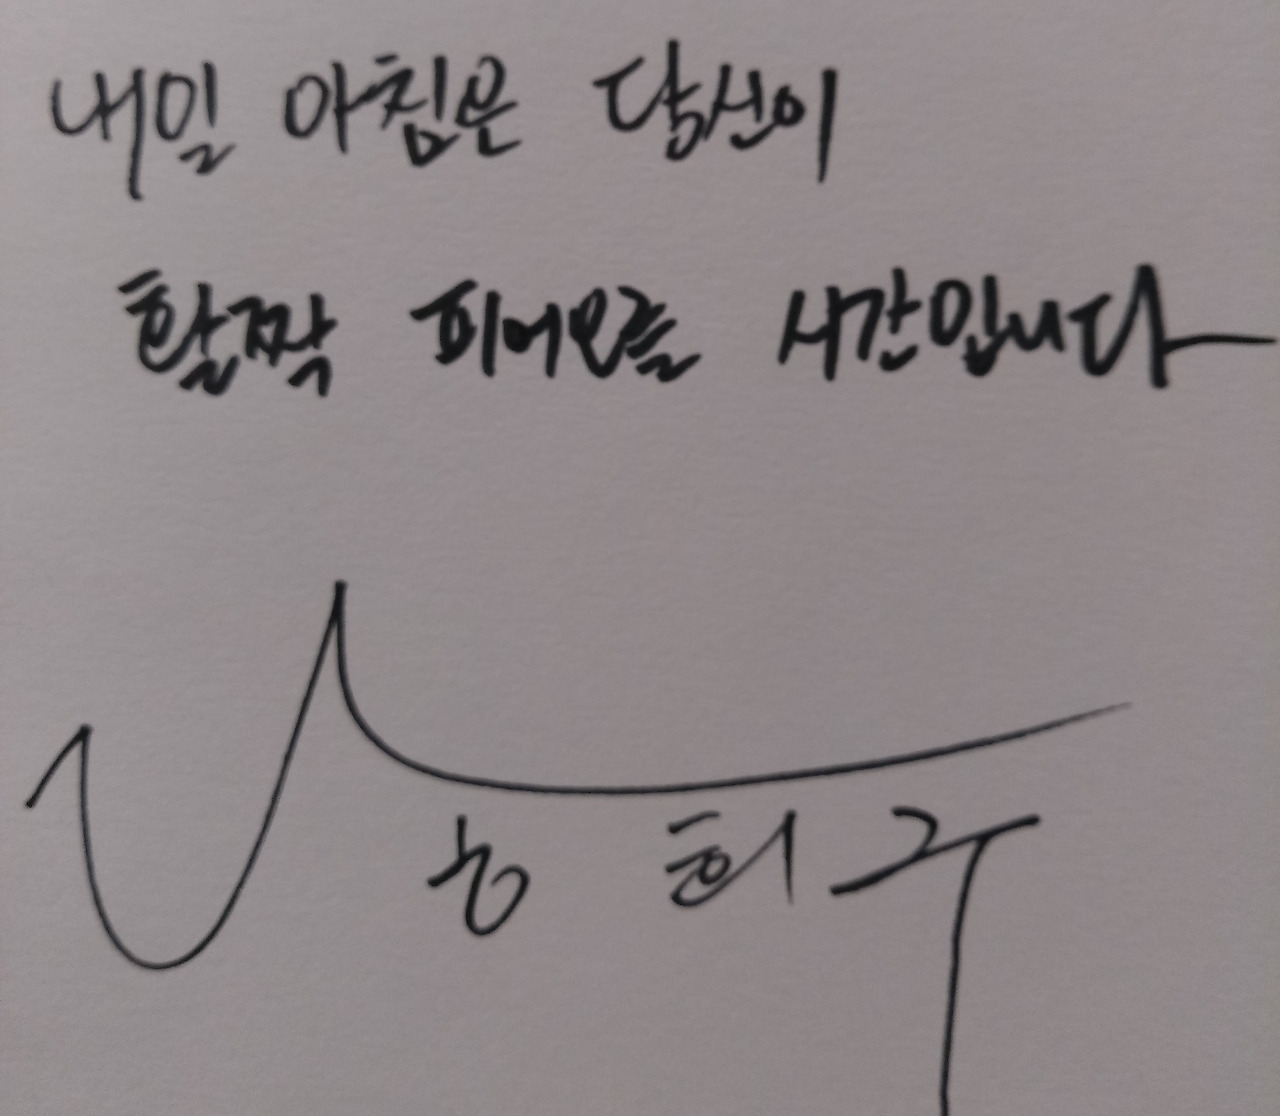 내일 아침은 당신이
활짝 피어오를 시간입니다
농 희구